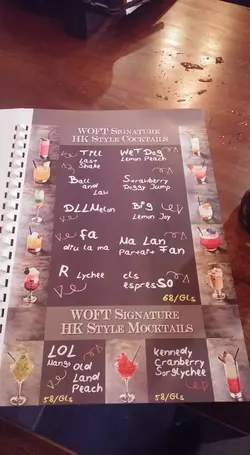 WOFT SIGNATURE
HK STYLE COCKTAILS
TMLL
Last
Shake
WeT Dog
Lemon Peach
Ball
and
Law
Strawberry
Doggy Jump
DLLMelon
Big
Lemon Joy
fa
diu la ma
Ma Lan
Parfait Fan
R Lychee
cls
espresso
68/Gls
WOFT SIGNATURE
HK STYLE MOCKTAILS
LOL
Mango
Old
Land
Peach
58/Gls
Kennedy
Cranberry
58/Gls